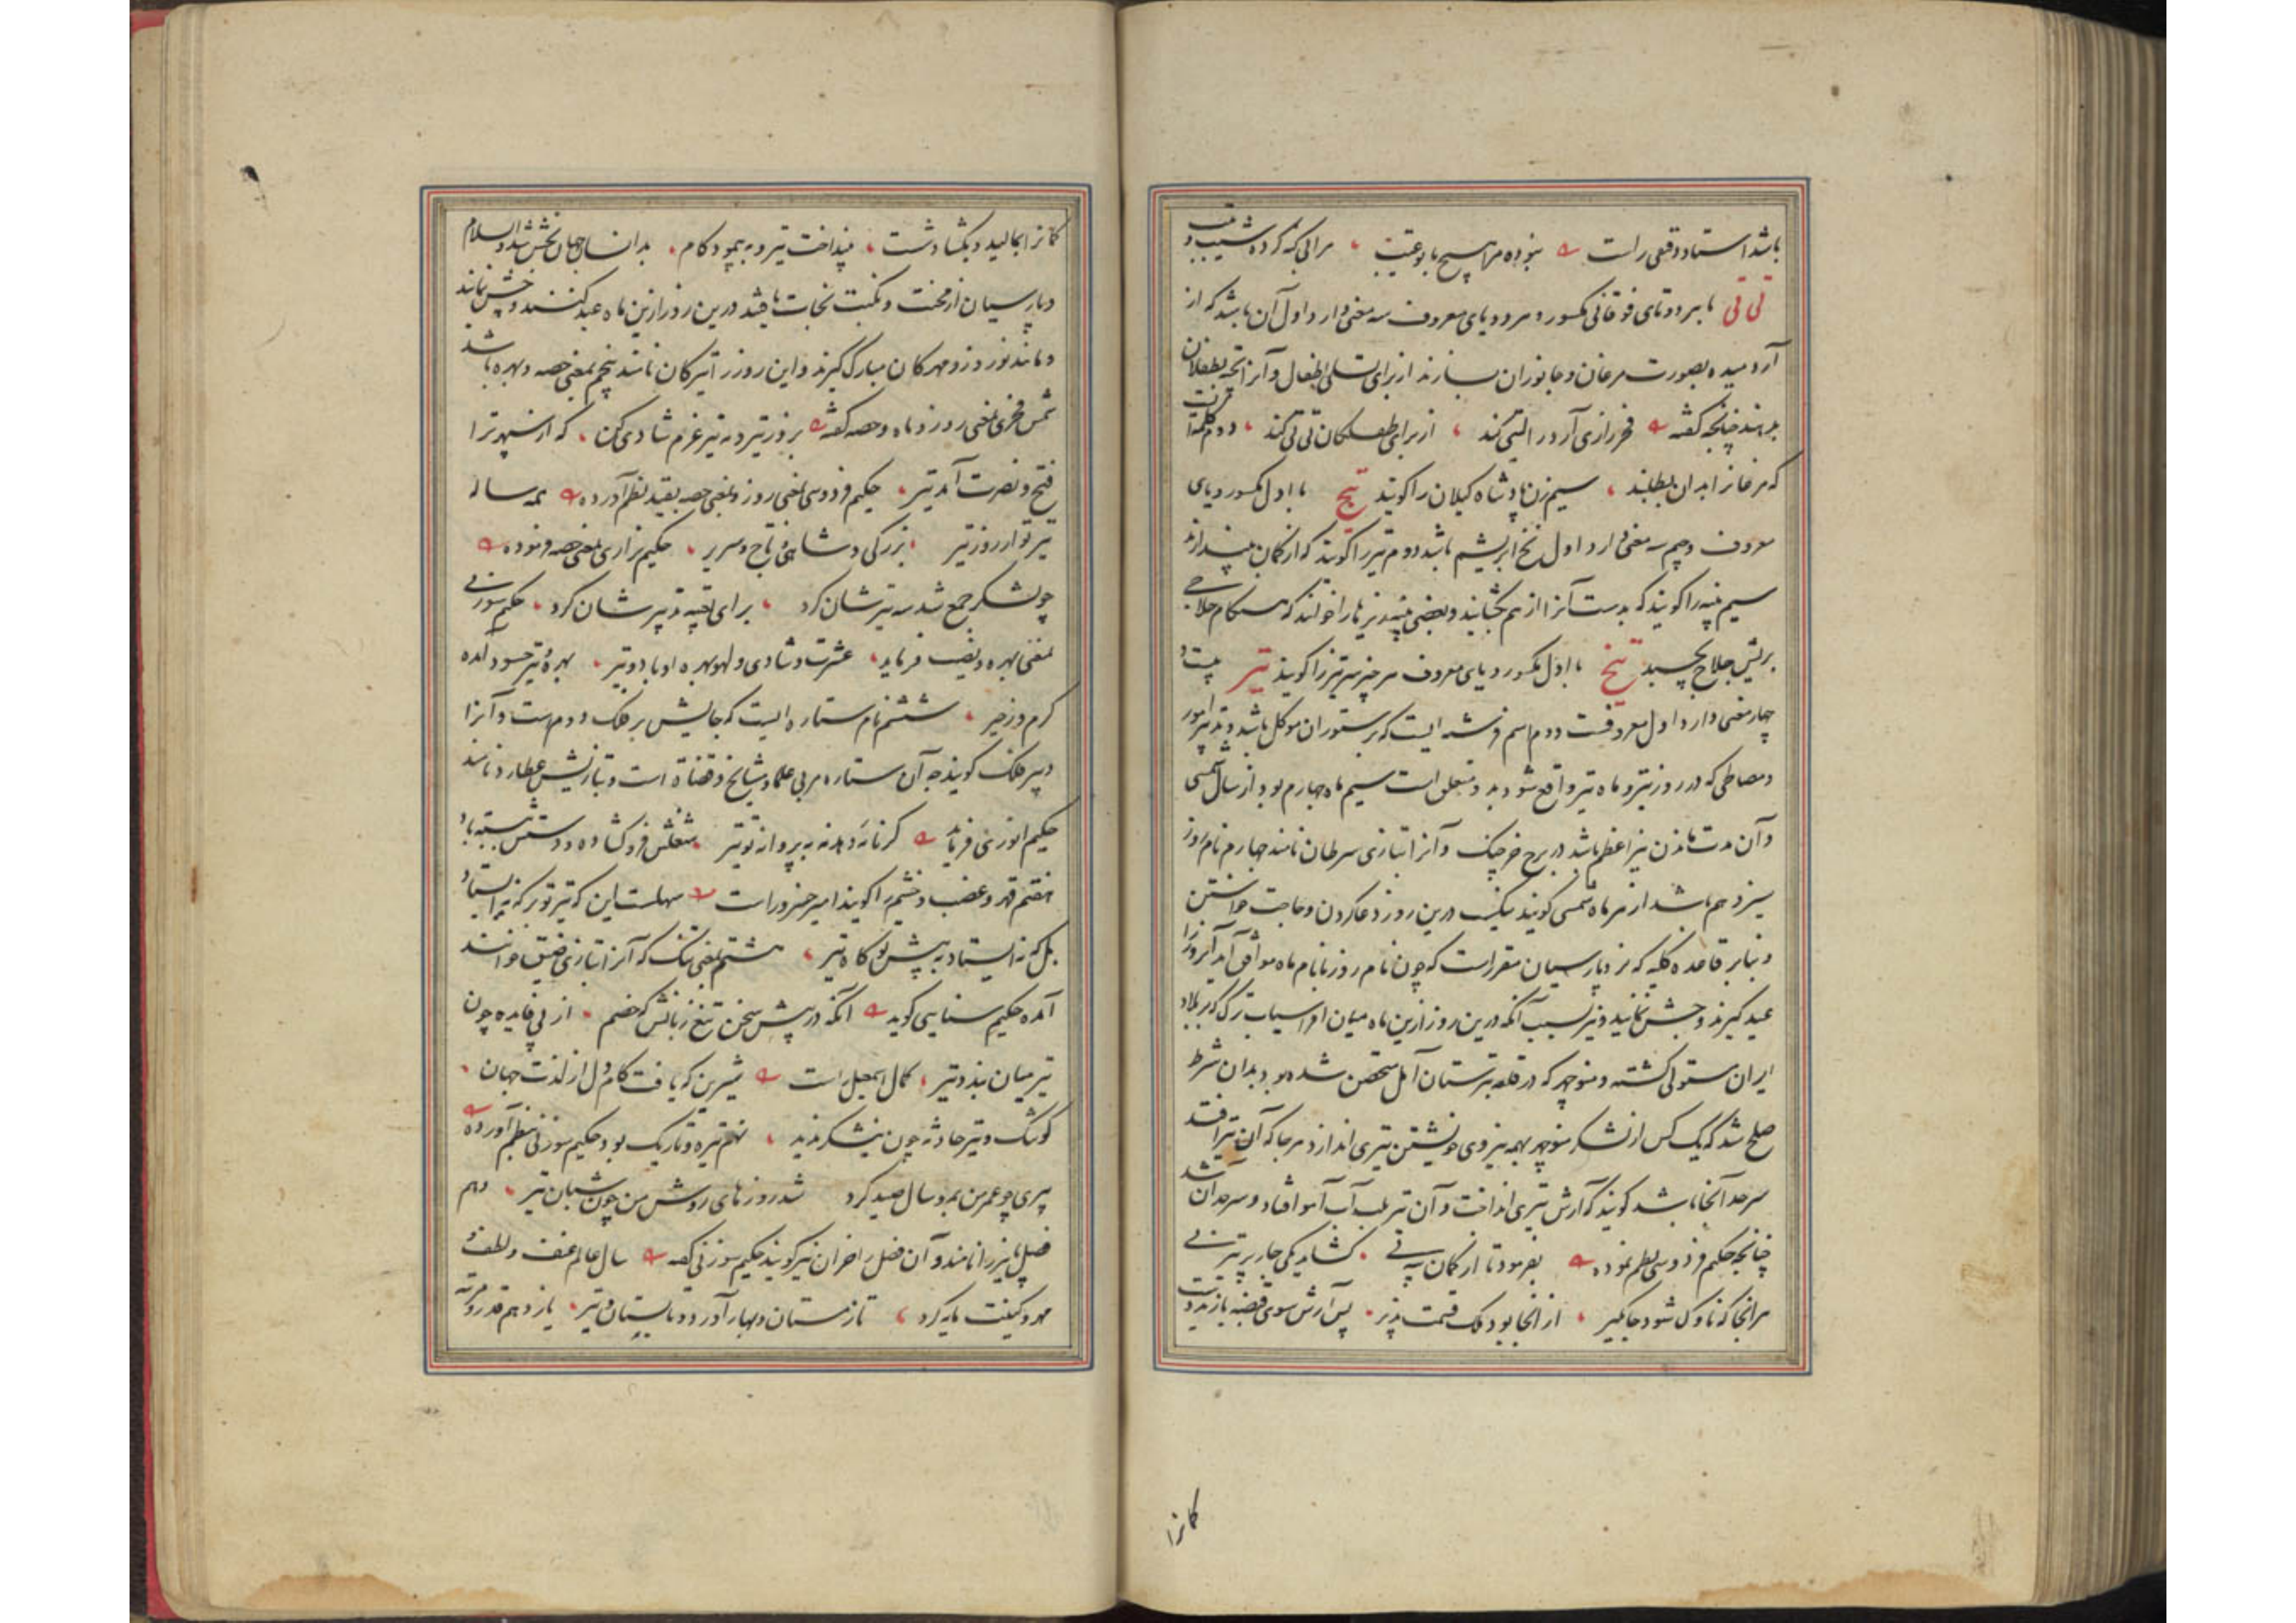 باشد استاد دقیقی راست نبوده مرا هیچ با تو عتیب مرا بی گنه کرده شیب و تیب
تی تی با هر دو تای فوقانی مکسور و هر دو یای معروف سه معنی دارد اول آن باشد که از
آرد میده بصورت مرغان و جانوران بسازند از برای تسلی اطفال و آنرا تحفه بطفلان
بدهند چنانچه گفته فخر رازی آرد را التی کند از برای طفلکان تی تی کند دوم کلمه‌ایست
که مرغانرا بدان بطلبند سیم زن پادشاه گیلان را گویند تیج با اول مکسور و یای
معروف و جیم سه معنی دارد اول نخ ابریشم باشد دوم تیر را گویند که از کمان بیندازند
سیم پنبه را گویند که بدست آنرا از هم بگشایند و بعضی پنبه ریزها را خوانند که هنگام حلاجی
بریش حلاج بچسبد تیخ با اول مکسور و یای معروف هر چیز سرتیز را گویند تیر بیست و
چهار معنی دارد اول معروفست دوم اسم فرشته ایست که بر ستوران موکل باشد و تدبیر امور
و مصالحی که در روز تیر و ماه تیر واقع شود بدو متعلق است سیم ماه چهارم بود از سال شمسی
و آن مدت ماندن نیر اعظم باشد در برج خرچنگ و آنرا بتازی سرطان نامند چهارم نام روز
سیزدهم باشد از هر ماه شمسی گویند نیکست درین روز دعا کردن و حاجت خواستن
و بنا بر قاعده کلیه که نزد پارسیان مقرر است که چون نام روز با نام ماه موافق آمد آنروز را
عید گیرند و جشن نمایند و نیز بسبب آنکه درین روز ازین ماه میان افراسیاب ترک که بر بلاد
ایران مستولی گشته و منوچهر که در قلعه ترستان آمل متحصن شده بود بدان شرط
صلح شد که یک کس از لشکر منوچهر بهمه نیروی خویشتن تیری اندازد هر جا که آن تیر افتد
سرحد آنجا باشد گویند که آرش تیری انداخت و آن تیر بلب آب آمو افتاد و سرحد آن شد
چنانچه حکیم فردوسی نظم نموده بفرمود تا از کمان پی گشاید یکی چار پر تیر نی
هر آنجا که ناوک شود جایگیر از آنجا بود ملک قسمت پذیر پس آرش سوی قبضه یازید دست
کمانرا
کمانرا بمالید و بگشاد شست بینداخت تیر و بپیمود گام بدانسان جهان بخش شد والسلام
و پارسیان از محنت و نکبت نجات یافتند درین روز ازین ماه عید کنند و جشن نمایند
و مانند نوروز و مهرگان مبارک گیرند و این روز را تیرگان نامند پنجم بمعنی حصه و بهره باشد
شمس فخری بمعنی روز و ماه و حصه گفته بروز تیر و مه تیر عزم شادی کن که از سپهر ترا
فتح و نصرت آمد تیر حکیم فردوسی بمعنی روز و بمعنی حصه بقید نظم آورده همه ساله
تیر تو از روز تیر بزرگی و شاهی و تاج و سریر حکیم نزاری بمعنی حصه فرموده
چو لشکر جمع شد سه تیرشان کرد برای تعبیه تدبیرشان کرد حکیم سوزنی
بمعنی بهره و نصیب فرماید عشرت و شادی و لهو بهره او باد و تیر بهره و تیر حسود آمده
کرم و زحیر ششم نام ستاره ایست که جایش بر فلک دوم است و آنرا
دبیر فلک گویند چه آن ستاره مربی علما و مشایخ و قضاة است و بتازیش عطارد نامند
حکیم انوری فرماید گر نامه دهد نه به پروانه تو تیر شغلش فرو گشاده و دستش ببسته باد
هفتم قهر و غضب و خشم را گویند امیر خسرو راست سهلست این که تیر تو بر که نه ایستاد
بل که نه ایستاد به پیش تو گاه تیر هشتم بمعنی تنگ که آنرا بتازی ضیق خوانند
آمده حکیم سنایی گوید آنکه در پیش سخن تیغ زبانش گه خصم از پی فایده چون
تیر میان بندد تیر کمال اسمعیل راست شیرین که یافت کام دل از لذت جهان
کوشک و تیر حادثه چون نیشکر ندید نهم تیره و تاریک بود حکیم سوزنی بنظم آورده
پیری چو عمر من بمه و سال صید کرد شد روزهای روشن من چون شبان تیر دهم
فصل پاییز را نامند و آن فصل را خزان نیز گویند حکیم سوزنی گفته سال عالم عنف و لطف و
مهر و کینت مایه کرد تا زمستان و بهار آورد و تابستان و تیر یازدهم قدر و مرتبه